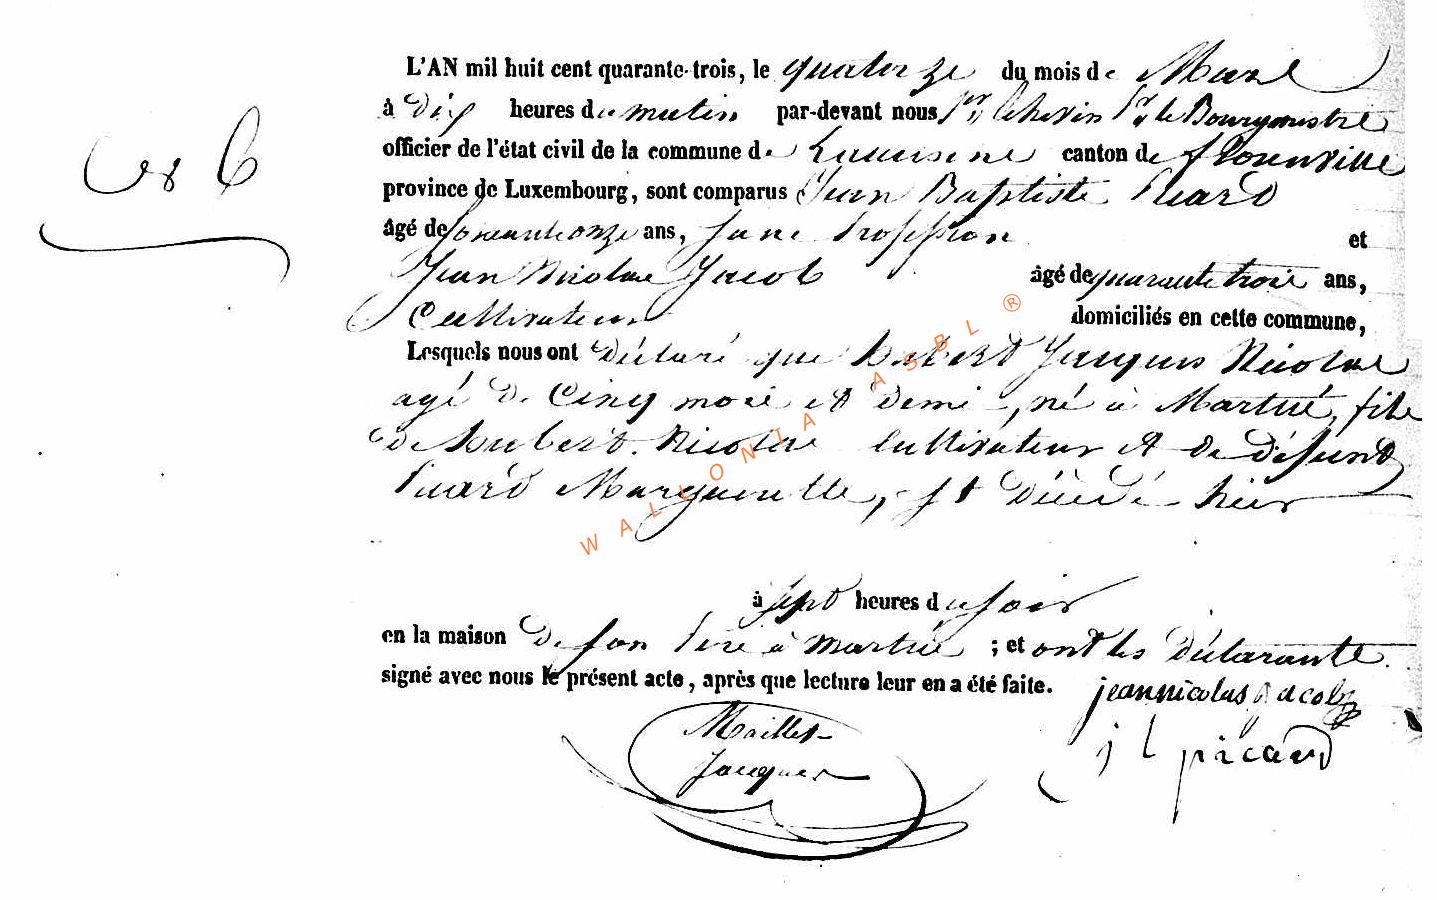 N° 6
L'AN mil huit cent quarante-trois, le quatorze du mois de Mars
à dix heures du matin par-devant nous 1er Echevin pr le Bourgmestre
officier de l'état civil de la commune de Lacuisine canton de florenville
province de Luxembourg, sont comparus Jean Baptiste Picard
âgé de soixante onze ans, sans profession et
Jean Nicolas Jacob âgé de quarante trois ans,
Cultivateur domiciliés en cette commune,
Lesquels nous ont déclaré que hubert Jacques Nicolas
agé de Cinq mois et demi, né à Martué, fils
de hubert Nicolas Cultivateur et de défunte
Picard Marguerite, est décédé hier
à sept heures du soir
en la maison de son Père à Martué ; et ont les déclarants
signé avec nous le présent acte, après que lecture leur en a été faite.
jean nicolas Jacob
Maillet
Jacques
j b picard
WALLONIA ASBL ®